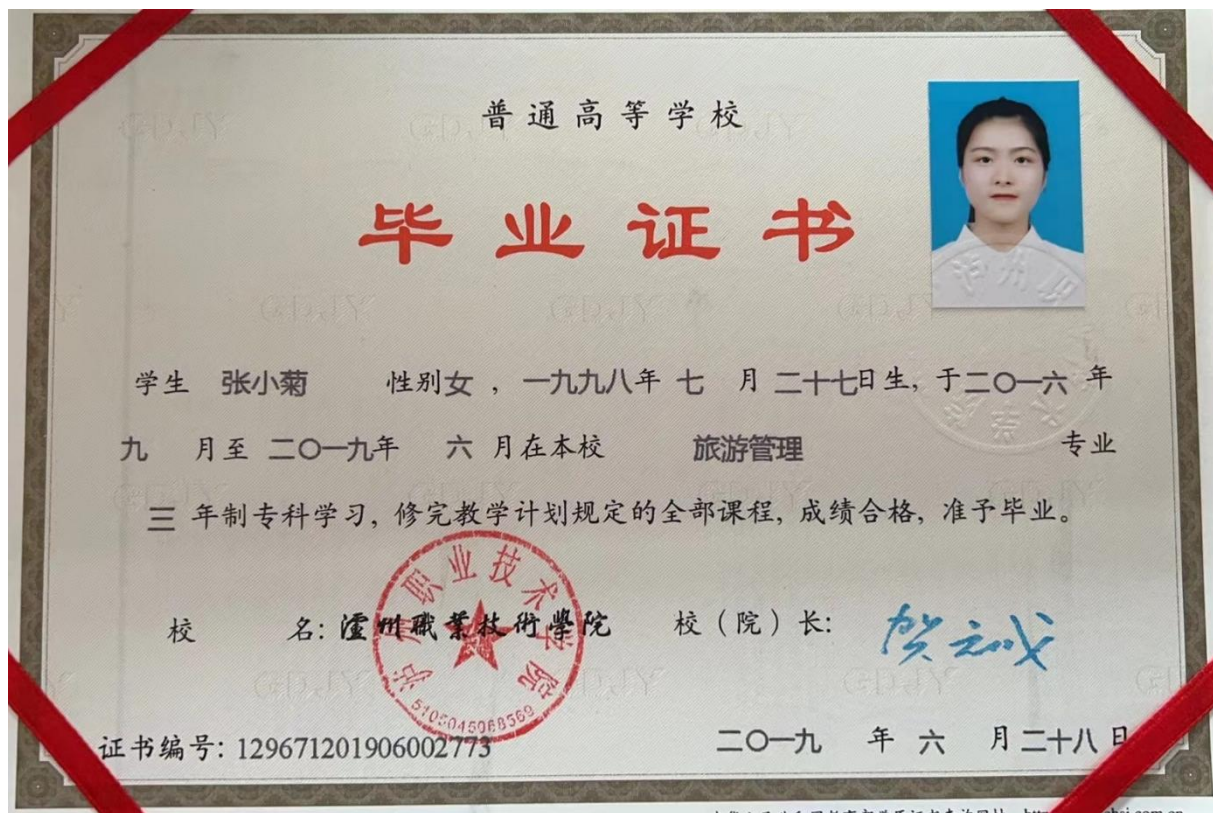 普通高等学校
毕业证书
学生 张小菊 性别女，一九九八年 七 月 二十七日生，于二〇一六 年
九 月至 二〇一九年 六 月在本校 旅游管理 专业
三 年制专科学习，修完教学计划规定的全部课程，成绩合格，准予毕业。
校 名：瀘州職業技術學院 校（院）长：
泸州职业技术学院
5105045068569
证书编号：129671201906002773 二〇一九 年 六 月二十八日